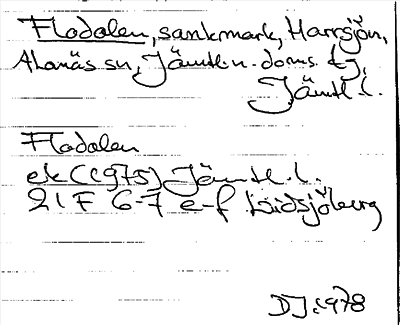 Flodalen, sankmark, Harrsjön,
Alanäs sn, Jämtl. n. doms. tj,
Jämtl. l.
Flodalen
ek (1975) Jämtl. l.
21 F 6-7 e-f
DJ. 1978